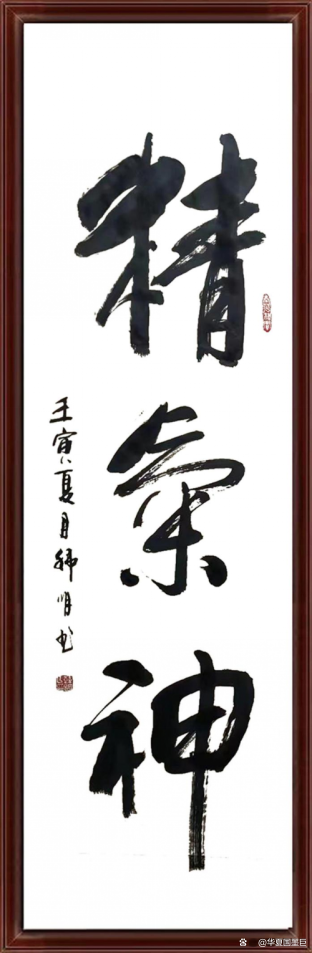 精氣神
壬寅夏月
明书
@华夏国墨巨